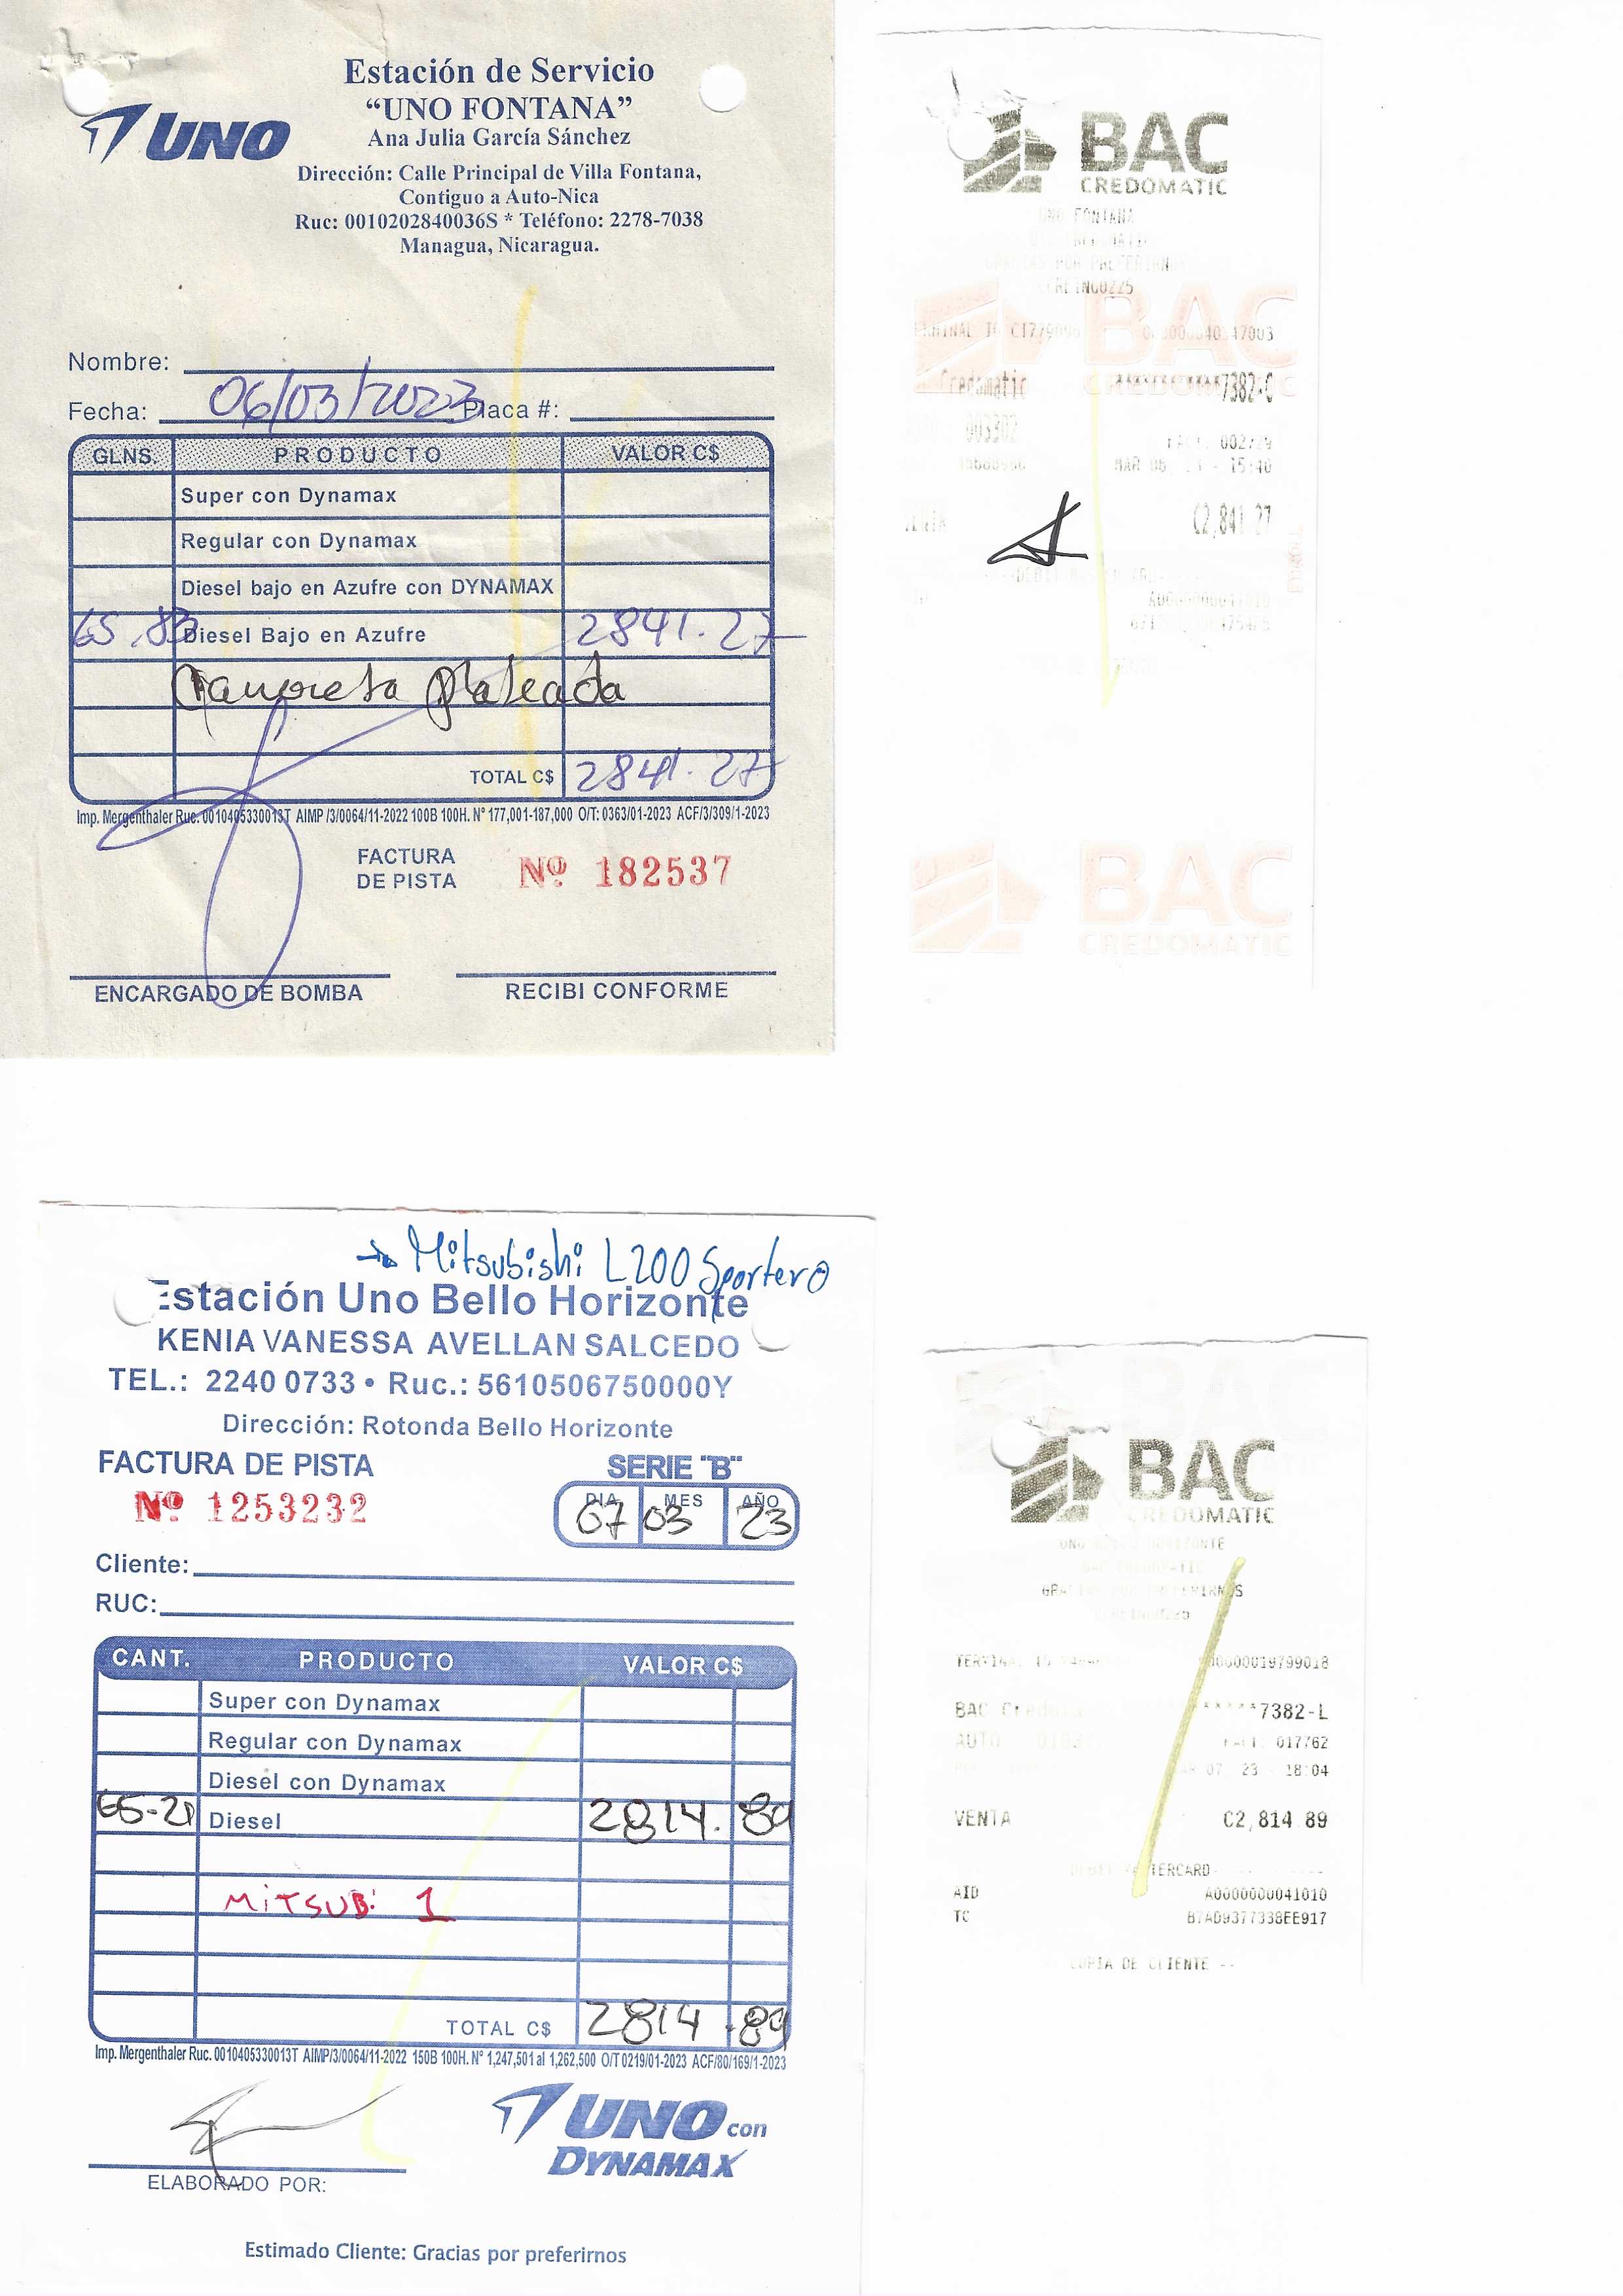 UNO
Estación de Servicio
“UNO FONTANA”
Ana Julia García Sánchez
Dirección: Calle Principal de Villa Fontana,
Contiguo a Auto-Nica
Ruc: 0010202840036S * Teléfono: 2278-7038
Managua, Nicaragua.
Nombre:
Fecha: 06/03/2023 Placa #:
GLNS. PRODUCTO VALOR C$
Super con Dynamax
Regular con Dynamax
Diesel bajo en Azufre con DYNAMAX
65.83 Diesel Bajo en Azufre 2841.27
Camioneta Plateada
TOTAL C$ 2841.27
Imp. Mergenthaler Ruc. 0010405330013T AIMP /3/0064/11-2022 100B 100H. N° 177,001-187,000 O/T: 0363/01-2023 ACF/3/309/1-2023
FACTURA
DE PISTA
Nº 182537
ENCARGADO DE BOMBA RECIBI CONFORME
BAC
CREDOMATIC
UNO FONTANA
BAC
CREDOMATIC
Credomatic ************7382-C
003302 FACT: 002729
MAR 06 - 15:40
C2,841 27
BAC
CREDOMATIC
→ Mitsubishi L200 Sportero
Estación Uno Bello Horizonte
KENIA VANESSA AVELLAN SALCEDO
TEL.: 2240 0733 • Ruc.: 5610506750000Y
Dirección: Rotonda Bello Horizonte
FACTURA DE PISTA SERIE "B"
Nº 1253232
DIA MES AÑO
07 03 23
Cliente:
RUC:
CANT. PRODUCTO VALOR C$
Super con Dynamax
Regular con Dynamax
Diesel con Dynamax
65-21 Diesel 2814.89
MiTSUBi 1
TOTAL C$ 2814.89
Imp. Mergenthaler Ruc. 0010405330013T AIMP/3/0064/11-2022 150B 100H. N° 1,247,501 al 1,262,500 O/T 0219/01-2023 ACF/80/169/1-2023
ELABORADO POR:
UNO con
DYNAMAX
Estimado Cliente: Gracias por preferirnos
BAC
CREDOMATIC
GRACIAS POR PREFERIRNOS
000000019799018
BAC ******7382-L
AUTO FACT: 017762
MAR 07 23 - 18:04
VENTA C2,814 89
DEBIT MASTERCARD
AID A0000000041010
TC B7AD9377338EE917
COPIA DE CLIENTE --